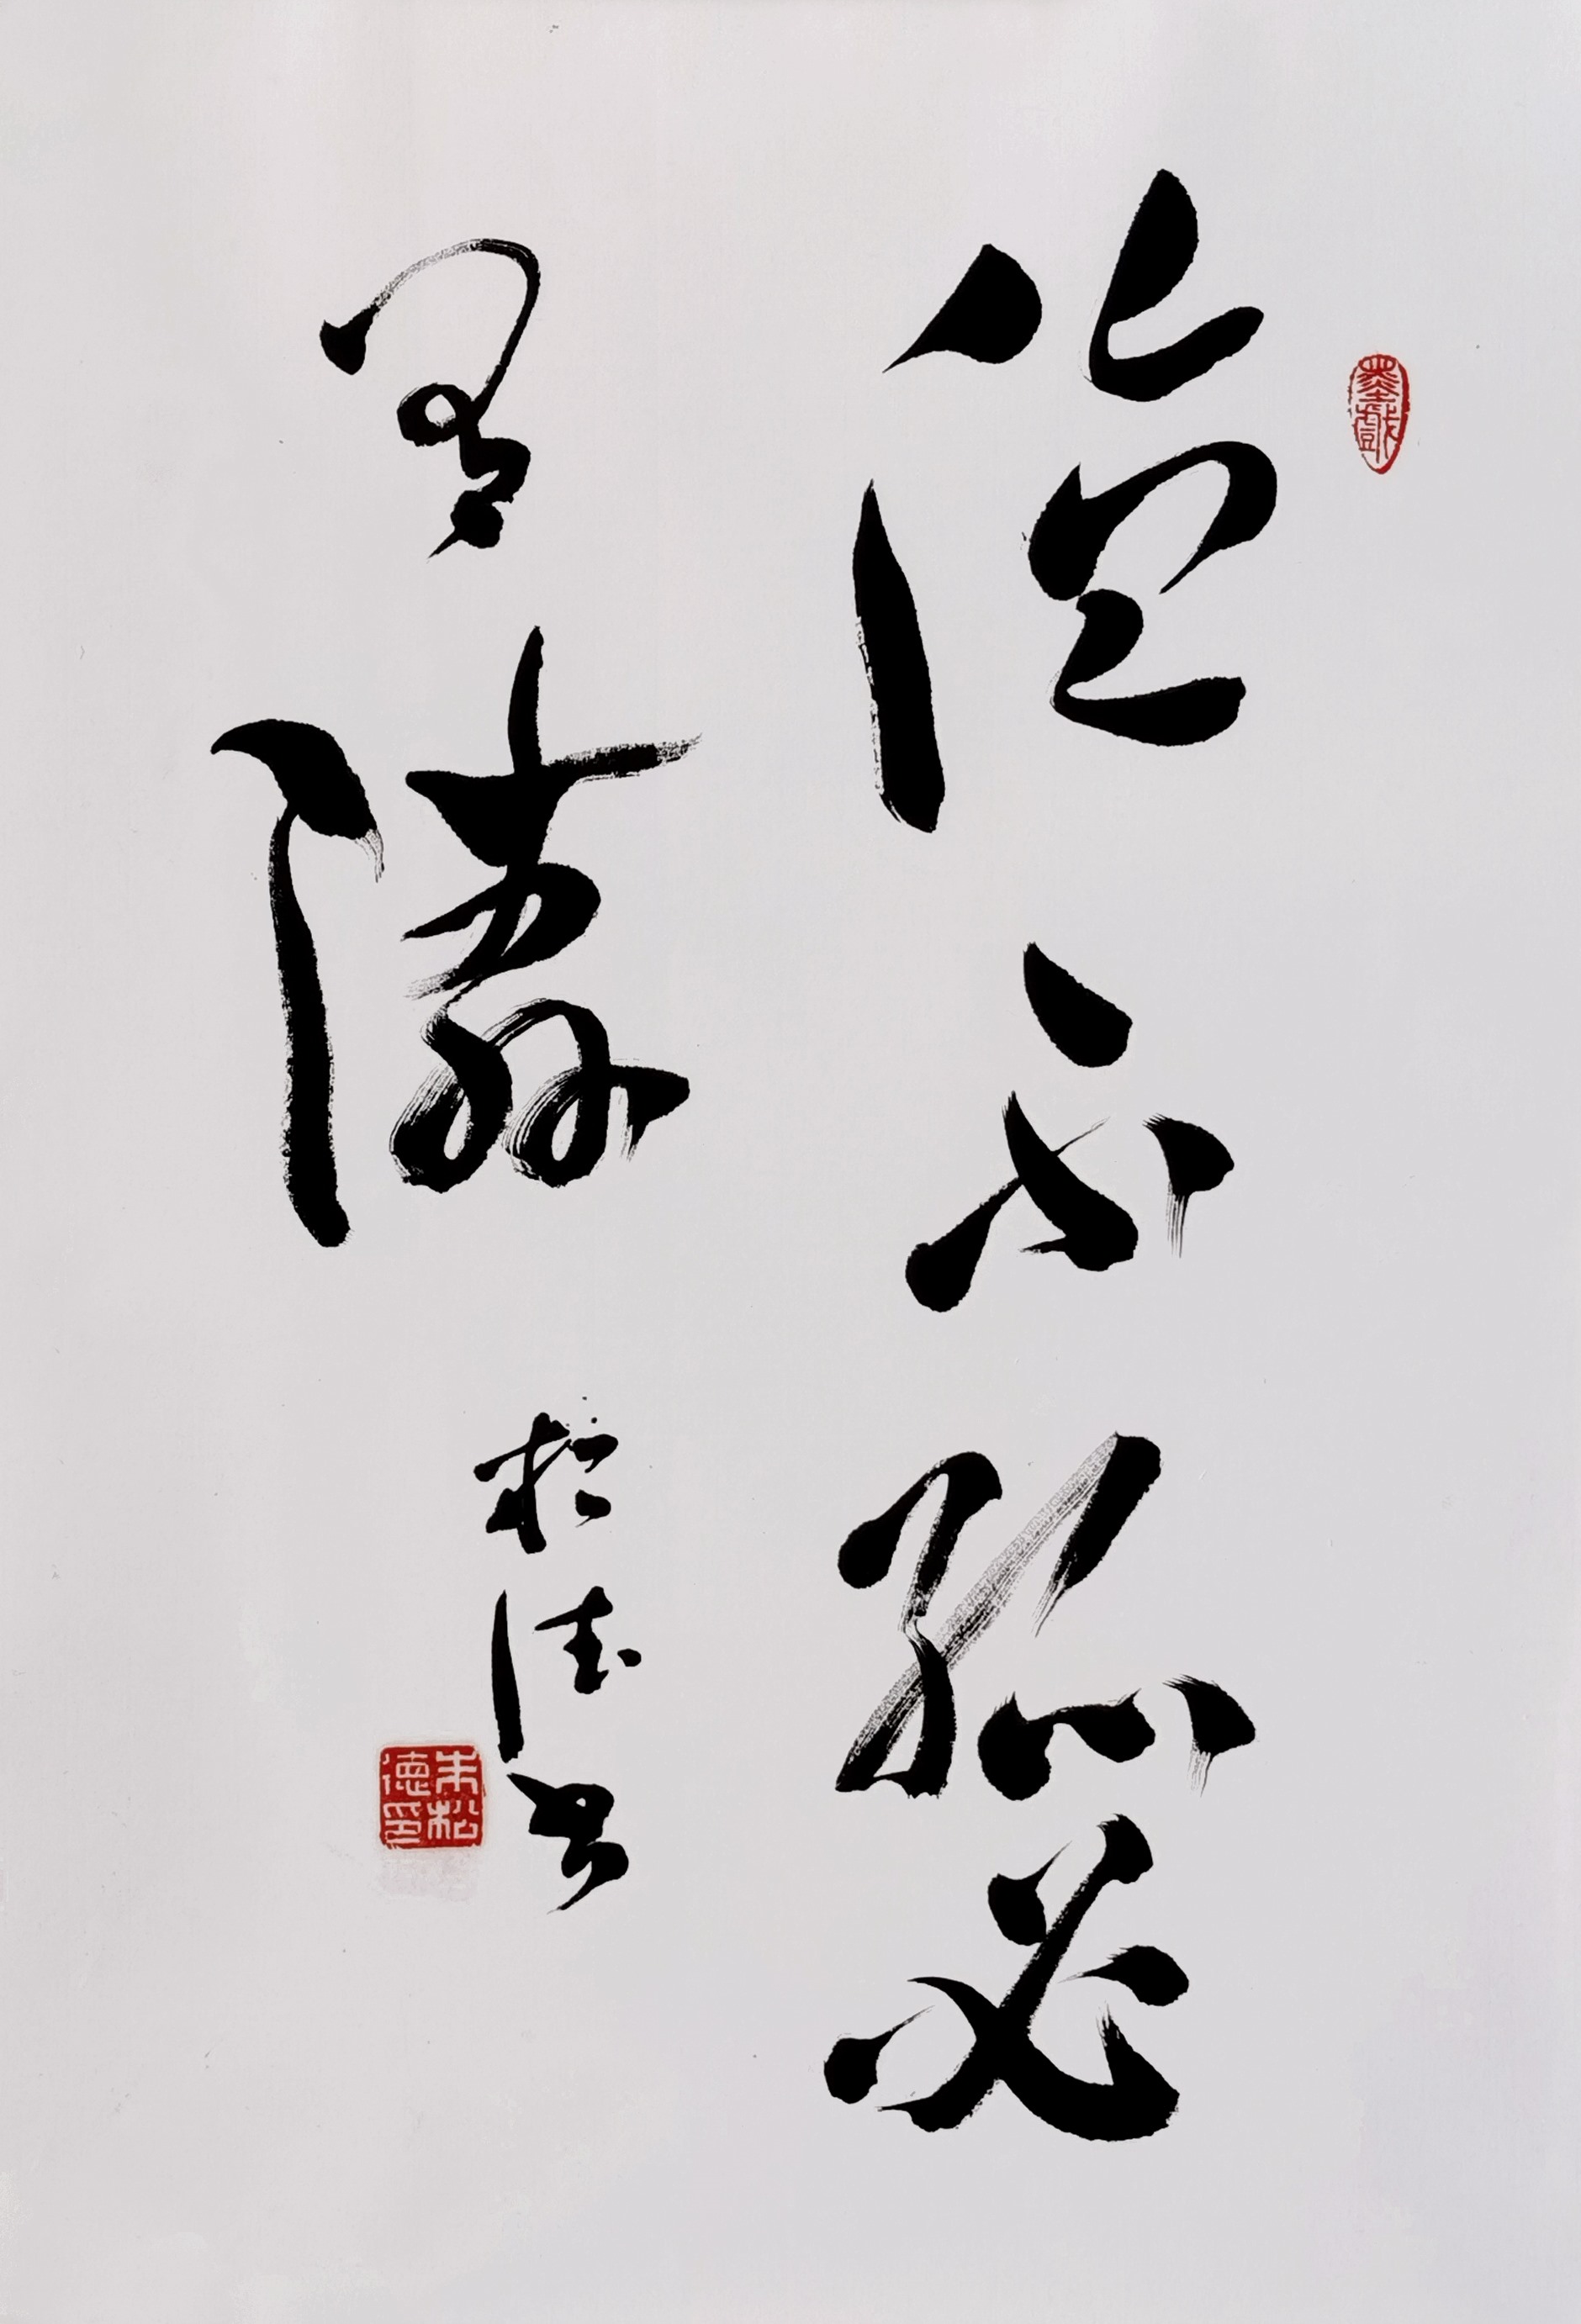 墨戲
德不孤必
有隣
松德书
朱松
德印